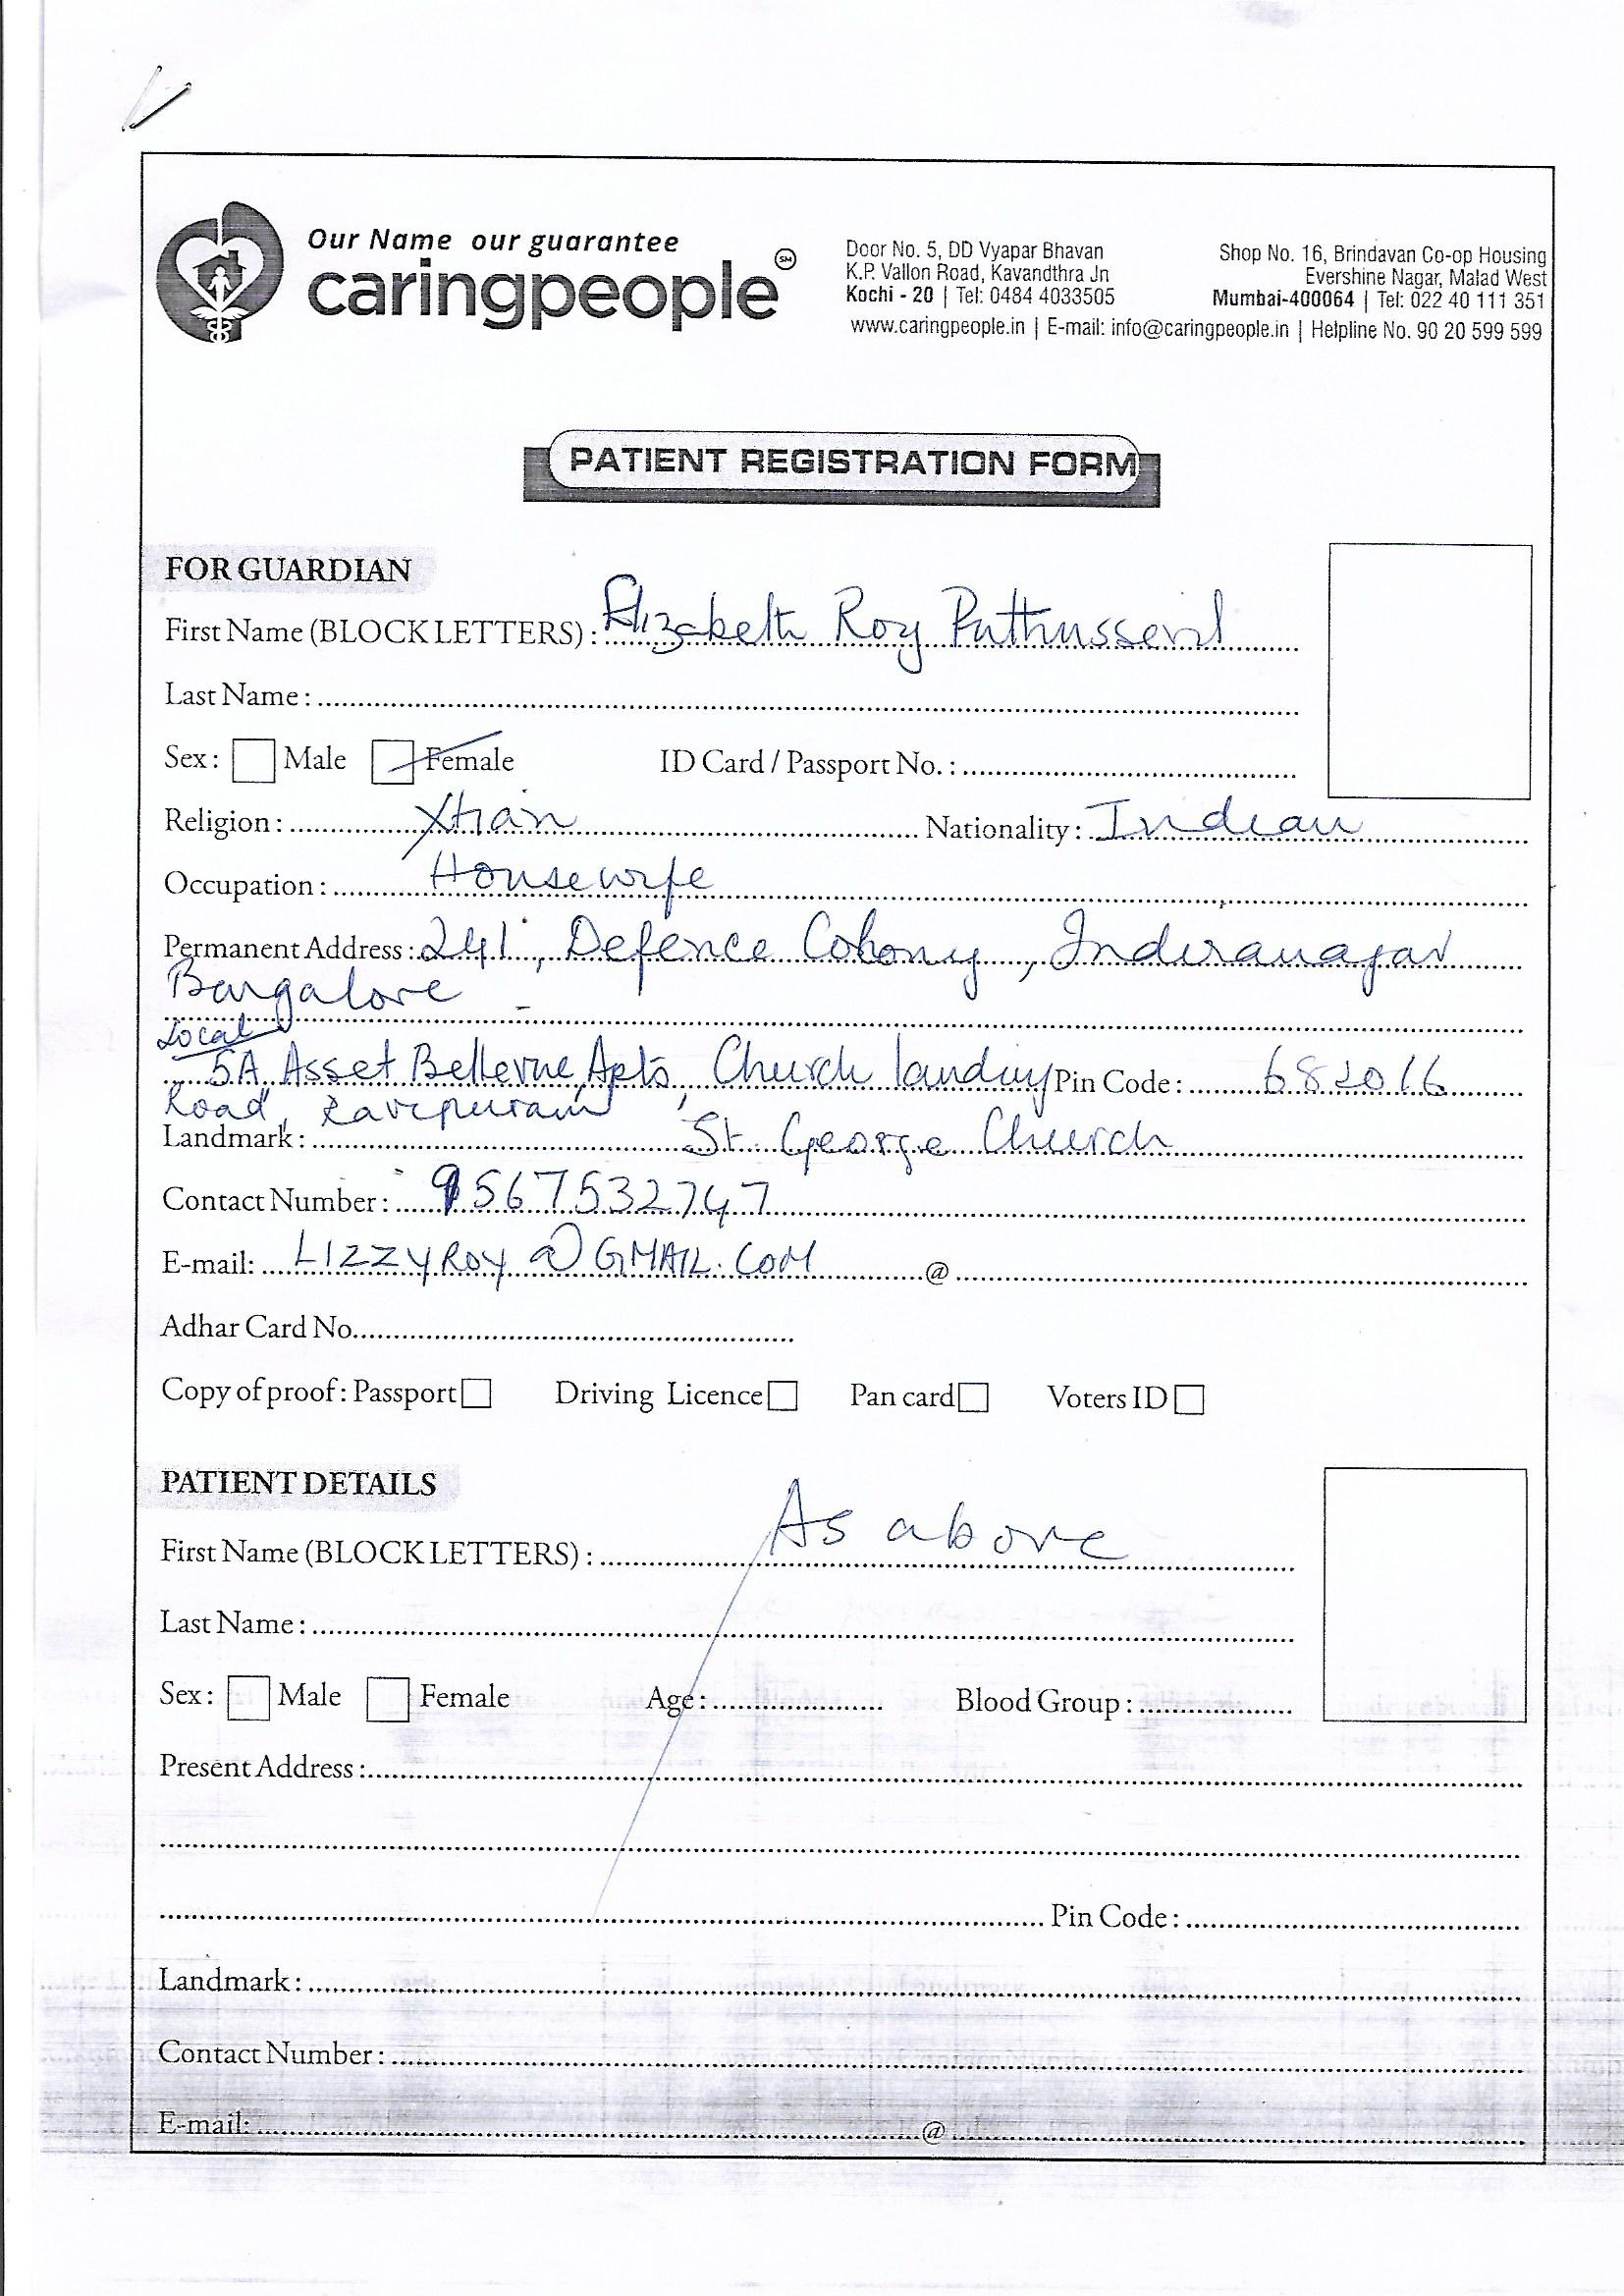 Our Name our guarantee
caringpeople SM
Door No. 5, DD Vyapar Bhavan
K.P. Vallon Road, Kavandthra Jn
Kochi - 20 | Tel: 0484 4033505
Shop No. 16, Brindavan Co-op Housing
Evershine Nagar, Malad West
Mumbai-400064 | Tel: 022 40 111 351
www.caringpeople.in | E-mail: info@caringpeople.in | Helpline No. 90 20 599 599
PATIENT REGISTRATION FORM
FOR GUARDIAN
First Name (BLOCK LETTERS) : Elizabeth Roy Puthusseril
Last Name :
Sex : Male Female ID Card / Passport No. :
Religion : Xtian Nationality : Indian
Occupation : Housewife
Permanent Address : 241, Defence Colony, Indiranagar
Bangalore
Local
5A Asset Bellevue Apts, Church landing Pin Code : 682016
Road, Ravipuram
Landmark : St. George Church
Contact Number : 9567532747
E-mail: LIZZYROY @ GMAIL.COM @
Adhar Card No.
Copy of proof : Passport Driving Licence Pan card Voters ID
PATIENT DETAILS
First Name (BLOCK LETTERS) : As above
Last Name :
Sex : Male Female Age : Blood Group :
Present Address :
Pin Code :
Landmark :
Contact Number :
E-mail: @